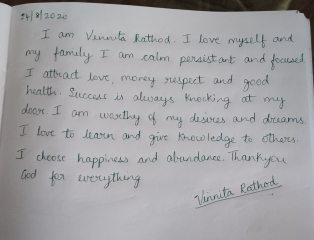 24/8/2020
I am Vinnita Rathod. I love myself and
my family I am calm persistant and focused
I attract love, money respect and good
health. Success is always knocking at my
door. I am worthy of my desires and dreams
I love to learn and give knowledge to others.
I choose happiness and abundance. Thankyou
God for everything
Vinnita Rathod